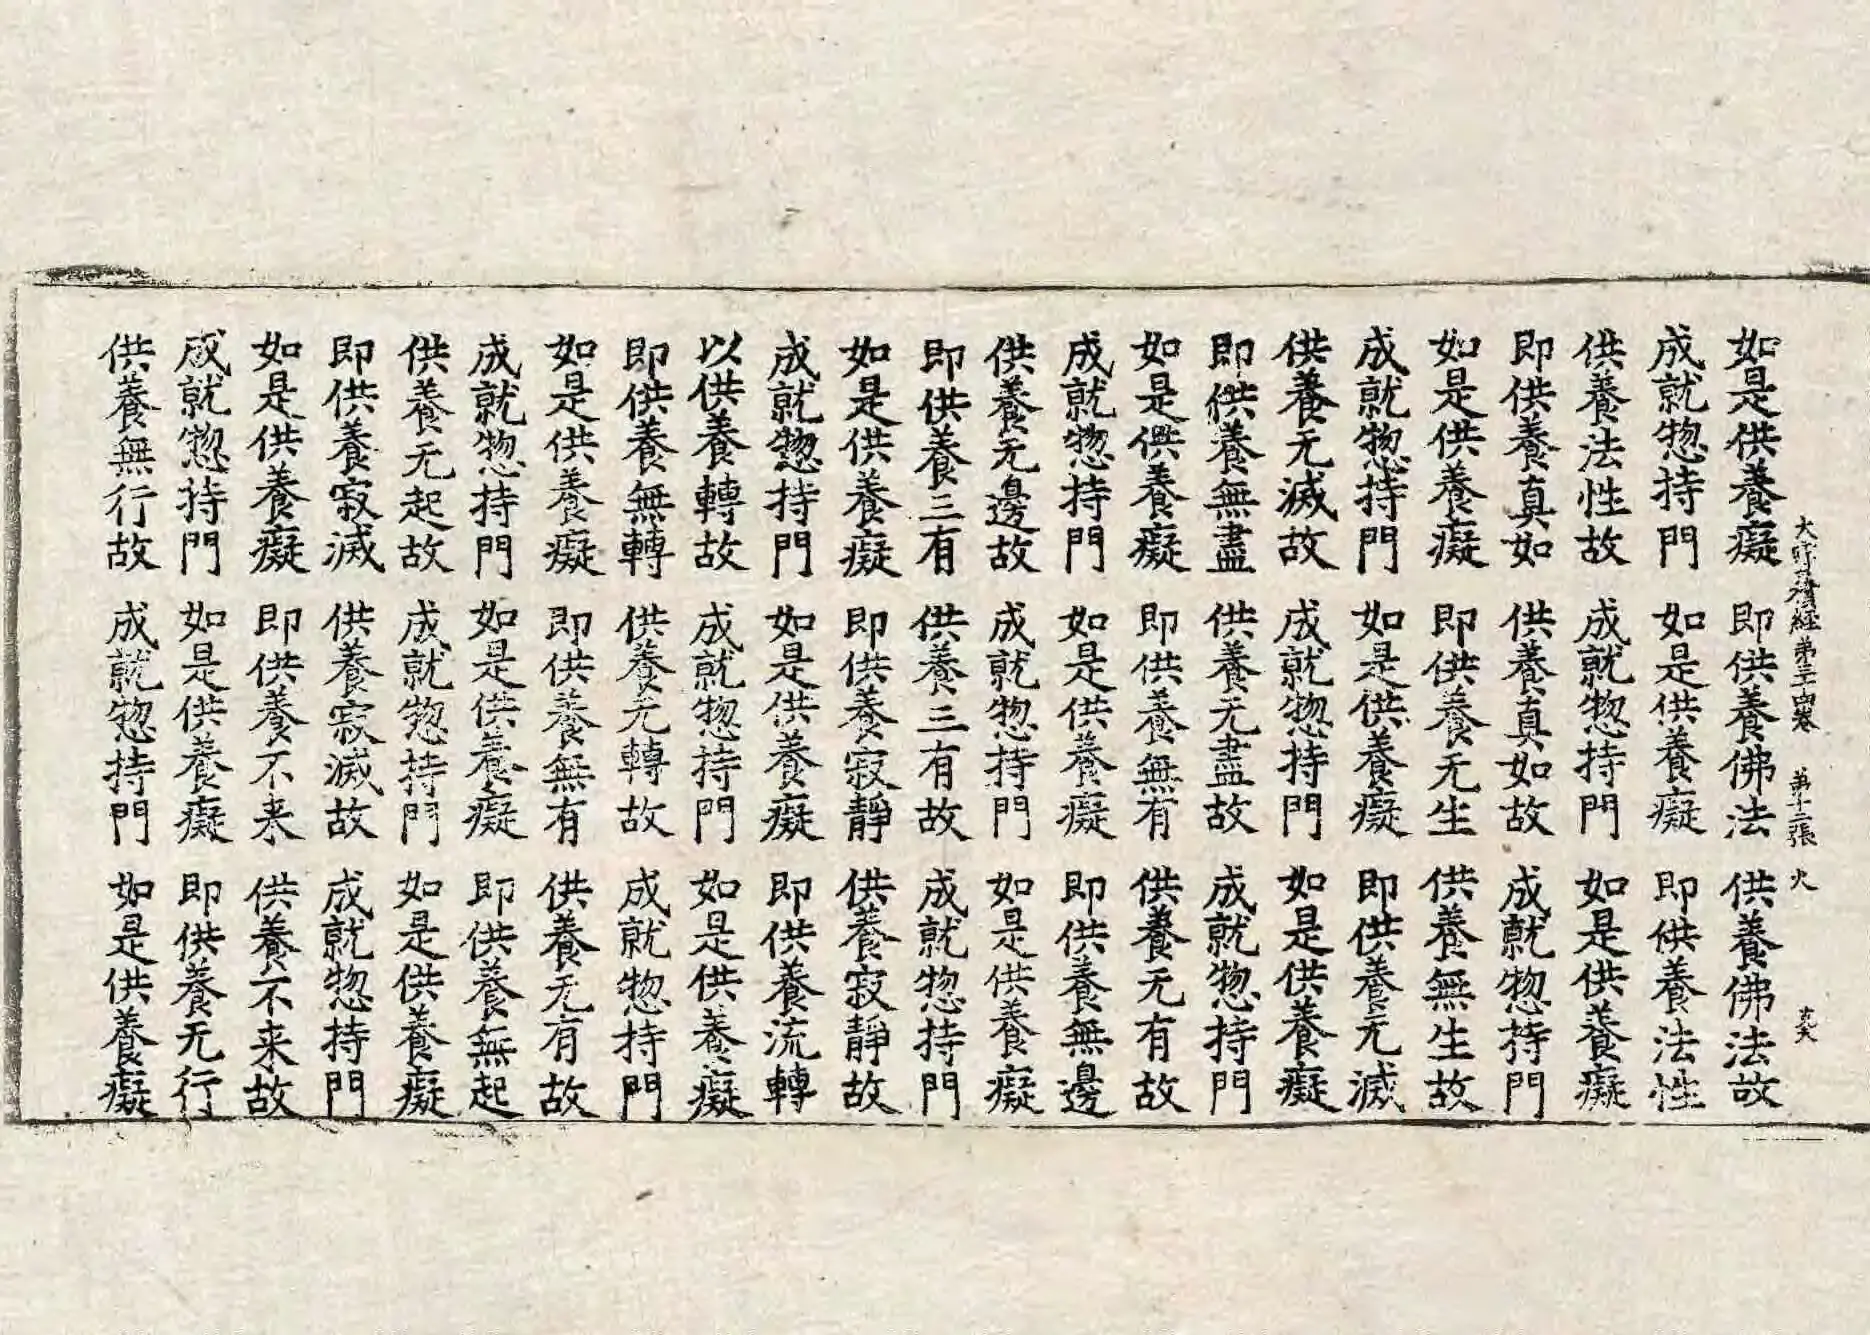 大積經第三十四卷 第十二張 火
如是供養癡 即供養佛法 供養佛法故
成就惣持門 如是供養癡 即供養法性
供養法性故 成就惣持門 如是供養癡
即供養真如 供養真如故 成就惣持門
如是供養癡 即供養无生 供養無生故
成就惣持門 如是供養癡 即供養无滅
供養无滅故 成就惣持門 如是供養癡
即供養無盡 供養无盡故 成就惣持門
如是供養癡 即供養無有 供養无有故
成就惣持門 如是供養癡 即供養無邊
供養无邊故 成就惣持門 如是供養癡
即供養三有 供養三有故 成就惣持門
如是供養癡 即供養寂靜 供養寂靜故
成就惣持門 如是供養癡 即供養流轉
以供養轉故 成就惣持門 如是供養癡
即供養無轉 供養无轉故 成就惣持門
如是供養癡 即供養無有 供養无有故
成就惣持門 如是供養癡 即供養無起
供養无起故 成就惣持門 如是供養癡
即供養寂滅 供養寂滅故 成就惣持門
如是供養癡 即供養不来 供養不来故
成就惣持門 如是供養癡 即供養无行
供養無行故 成就惣持門 如是供養癡